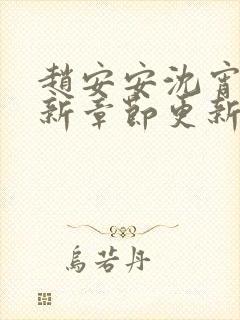 趙安安沈宵
新章節更新
烏若丹